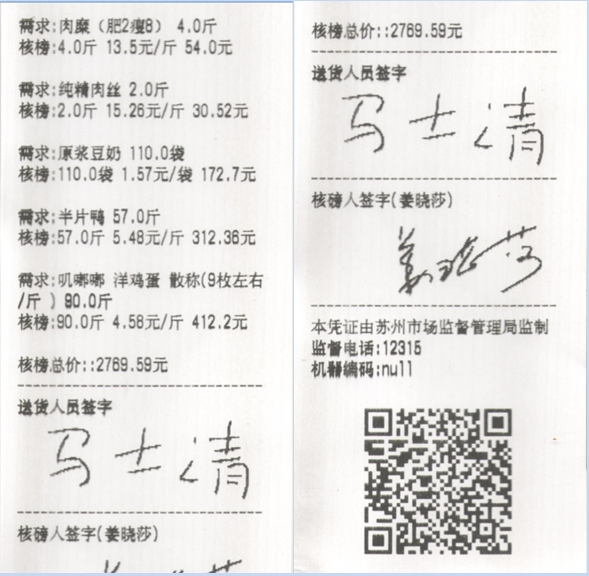 需求:肉糜（肥2瘦8） 4.0斤
核榜:4.0斤 13.5元/斤 54.0元
需求:纯精肉丝 2.0斤
核榜:2.0斤 15.26元/斤 30.52元
需求:原浆豆奶 110.0袋
核榜:110.0袋 1.57元/袋 172.7元
需求:半片鸭 57.0斤
核榜:57.0斤 5.48元/斤 312.36元
需求:叽嘟嘟 洋鸡蛋 散称(9枚左右
/斤 ) 90.0斤
核榜:90.0斤 4.58元/斤 412.2元
核榜总价::2769.59元
送货人员签字
马士清
核榜人签字(姜晓莎)
核榜总价::2769.59元
送货人员签字
马士清
核磅人签字(姜晓莎)
姜晓莎
本凭证由苏州市场监督管理局监制
监督电话:12315
机器编码:null